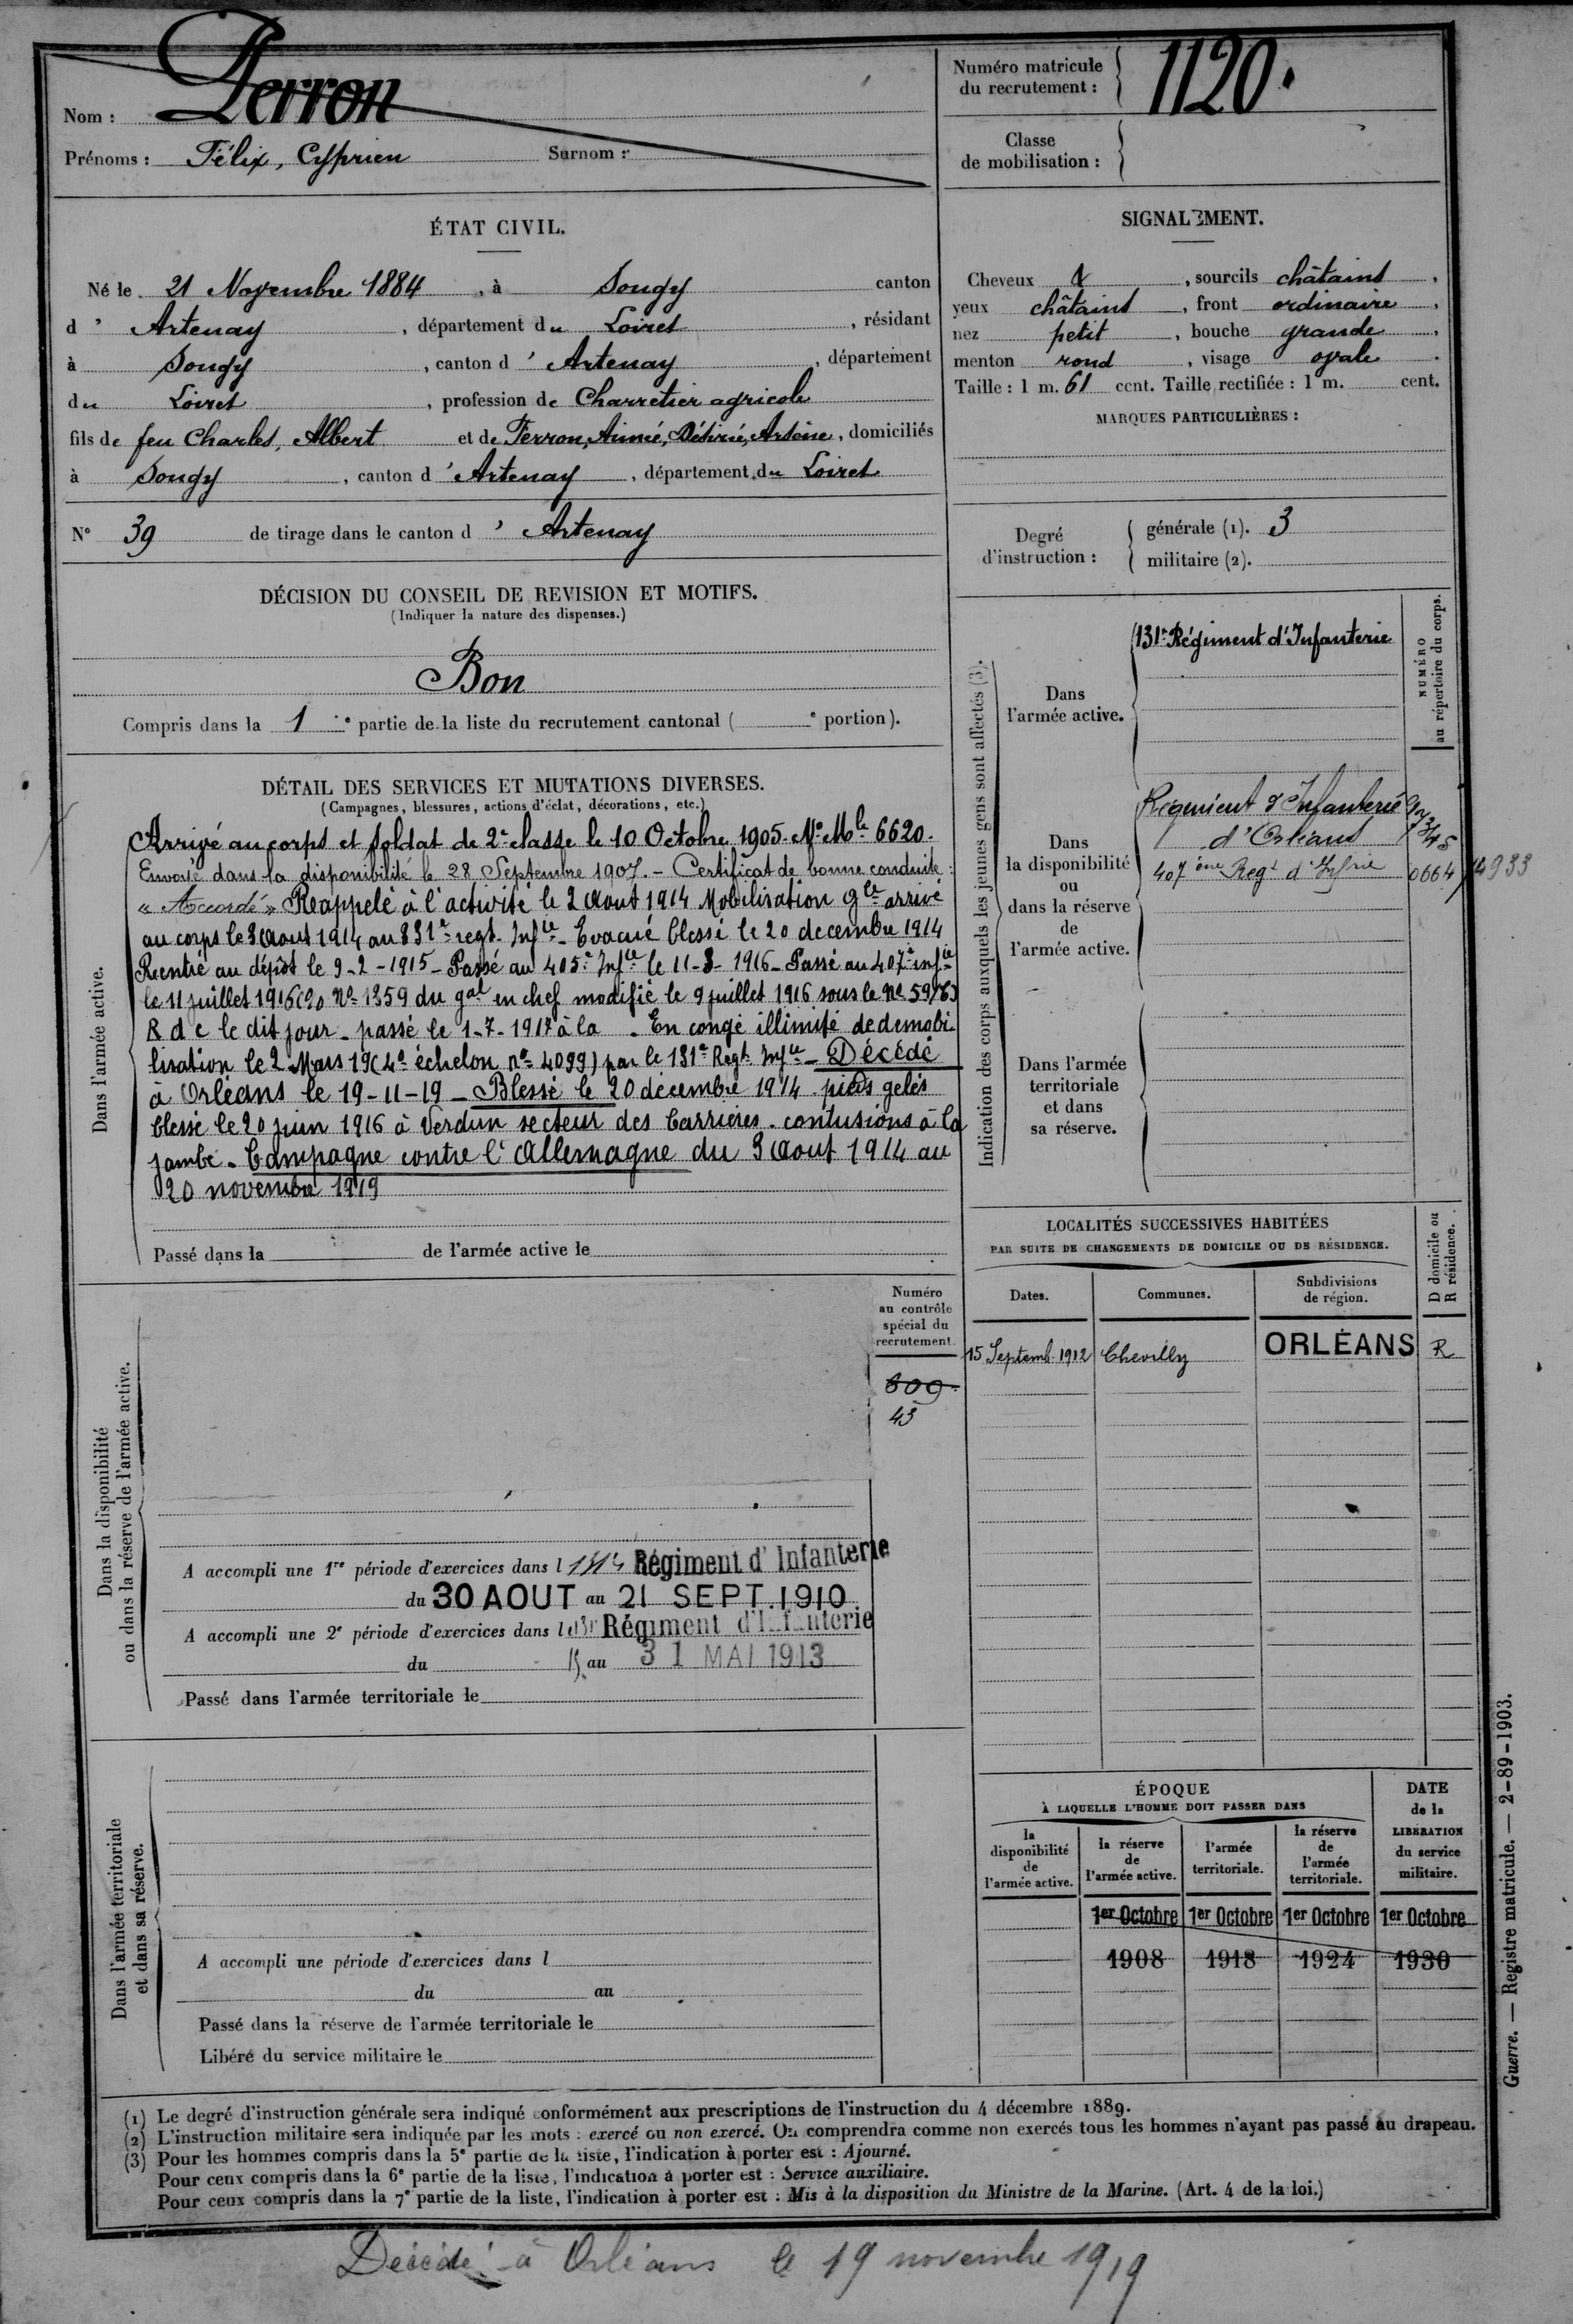 Nom : Perron
Prénoms : Félix, Cyprien Surnom :
Numéro matricule
du recrutement : 1120.
Classe
de mobilisation :
ÉTAT CIVIL.
Né le 21 Novembre 1884, à Sougy canton
d' Artenay, département du Loiret, résidant
à Sougy, canton d' Artenay, département
du Loiret, profession de Charretier agricole
fils de feu Charles, Albert et de Ferron, Aimée, Désirée, Arsène, domiciliés
à Sougy, canton d' Artenay, département du Loiret
N° 39 de tirage dans le canton d' Artenay
SIGNALEMENT.
Cheveux &, sourcils châtains,
yeux châtains, front ordinaire,
nez petit, bouche grande,
menton rond, visage ovale.
Taille : 1 m. 61 cent. Taille rectifiée : 1 m. cent.
MARQUES PARTICULIÈRES :
Degré
d'instruction :
générale (1). 3
militaire (2).
DÉCISION DU CONSEIL DE REVISION ET MOTIFS.
(Indiquer la nature des dispenses.)
Bon
Compris dans la 1e partie de la liste du recrutement cantonal ( e portion).
DÉTAIL DES SERVICES ET MUTATIONS DIVERSES.
(Campagnes, blessures, actions d'éclat, décorations, etc.)
Dans l'armée active.
Arrivé au corps et soldat de 2e classe le 10 Octobre 1905. No Mle 6620.
Envoyé dans la disponibilité le 28 Septembre 1907. - Certificat de bonne conduite :
"Accordé" Réappelé à l'activité le 2 Aout 1914 Mobilisation gle arrivé
au corps le 3 Aout 1914 au 331e regt. Infie - Evacué blessé le 20 decembre 1914
Rentré au dépôt le 9-2-1915 - Passé au 405e Infie le 11-3-1916 - Passé au 407e infie
le 11 juillet 1916 (20 No 1359 du gal en chef modifié le 9 juillet 1916 sous le No 5976)
R d c le dit jour - passé le 1-7-1917 à la - En congé illimité de demobi
lisation le 2 Mars 19 (4e échelon no 4099) par le 131e Regt. Infie - Décédé
à Orléans le 19-11-19 - Blessé le 20 décembre 1914 - pieds gelés
blessé le 20 juin 1916 à Verdun secteur des Carrières - contusions à la
jambe - Campagne contre l'Allemagne du 3 Aout 1914 au
20 novembre 1919
Passé dans la de l'armée active le
Indication des corps auxquels les jeunes gens sont affectés (3).
NUMÉRO
au répertoire du corps.
Dans
l'armée active.
131e Régiment d'Infanterie
Dans
la disponibilité
ou
dans la réserve
de
l'armée active.
Régiment d'Infanterie
d'Orléans
407ème Regt d'Infrie 0664 14933
Dans l'armée
territoriale
et dans
sa réserve.
LOCALITÉS SUCCESSIVES HABITÉES
PAR SUITE DE CHANGEMENTS DE DOMICILE OU DE RÉSIDENCE.
D domicile ou
R résidence.
Dates. Communes. Subdivisions
de région.
15 Septemb. 1912 Chevilly ORLÉANS R
Numéro
au contrôle
spécial du
recrutement.
609
43
Dans la disponibilité
ou dans la réserve de l'armée active.
A accompli une 1re période d'exercices dans l Régiment d'Infanterie
du 30 AOUT au 21 SEPT. 1910
A accompli une 2e période d'exercices dans l Régiment d'Infanterie
du 15 au 31 MAI 1913
Passé dans l'armée territoriale le
Dans l'armée territoriale
et dans sa réserve.
A accompli une période d'exercices dans l
du au
Passé dans la réserve de l'armée territoriale le
Libéré du service militaire le
ÉPOQUE
À LAQUELLE L'HOMME DOIT PASSER DANS
DATE
de la
LIBÉRATION
du service
militaire.
la
disponibilité
de
l'armée active.
la réserve
de
l'armée active.
l'armée
territoriale.
la réserve
de
l'armée
territoriale.
1er Octobre 1er Octobre 1er Octobre 1er Octobre
1908 1918 1924 1930
Guerre. — Registre matricule. — 2-89-1903.
(1) Le degré d'instruction générale sera indiqué conformément aux prescriptions de l'instruction du 4 décembre 1889.
(2) L'instruction militaire sera indiquée par les mots : exercé ou non exercé. On comprendra comme non exercés tous les hommes n'ayant pas passé au drapeau.
(3) Pour les hommes compris dans la 5e partie de la liste, l'indication à porter est : Ajourné.
Pour ceux compris dans la 6e partie de la liste, l'indication à porter est : Service auxiliaire.
Pour ceux compris dans la 7e partie de la liste, l'indication à porter est : Mis à la disposition du Ministre de la Marine. (Art. 4 de la loi.)
Décédé à Orléans le 19 novembre 1919